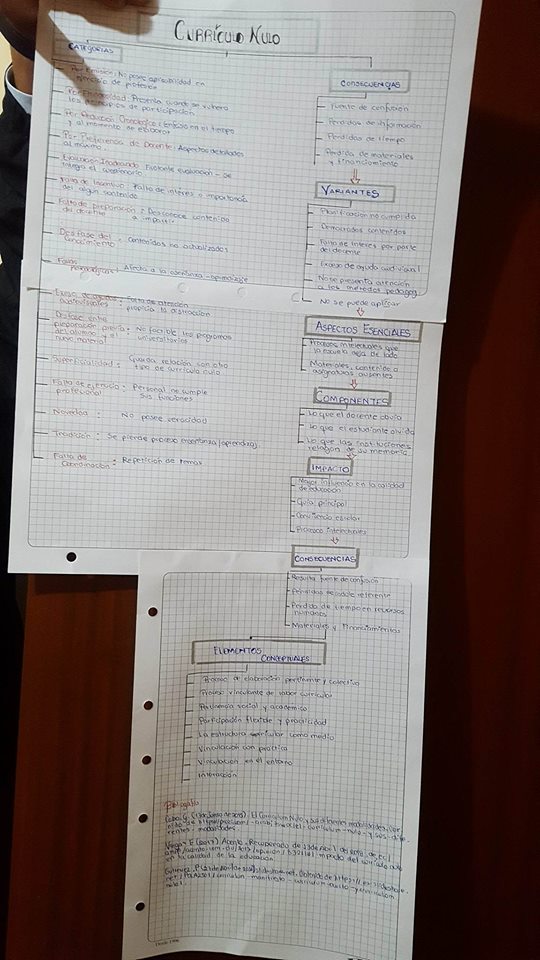 CURRÍCULO NULO
CATEGORÍAS
Por Emisión: No posee aplicabilidad en
ejercicio de profesión
Presenta cuando se vulnera
los principios de participación
Por Reducción Cronológica: Énfasis en el tiempo
y al momento de elaborar
Por Preferencia de Docente: Aspectos detallados
al máximo
Evaluación Inadecuada: Faltante evaluación - se
relega el cuestionario
Falta de Incentivo: Falta de interés o importancia
del algún contenido
Falta de preparación: Desconoce contenido
del docente a impartir
Desfase del
Conocimiento: Contenidos no actualizados
Fallas
Afecta a la enseñanza - aprendizaje
Exceso de ayudas
audiovisuales: Falta de atención
propicia la distracción
Desfase entre
preparación previa: No factible los programas
del alumno y universitarios
nuevo material
Superficialidad: Guarda relación con otro
tipo de currículo nulo
Falta de ejercicio: Personal no cumple
profesional sus funciones
Novedad: No posee veracidad
Tradición: Se pierde proceso enseñanza/aprendizaj
Falta de
Coordinación: Repetición de temas
CONSECUENCIAS
Fuente de confusión
Perdidas de información
Perdidas de tiempo
Perdida de materiales
y financiamiento
VARIANTES
Planificación no cumplida
Demasiados contenidos
Falta de Interés por parte
del docente
Exceso de ayuda audiovisual
No se presenta atención
a los métodos pedagóg
No se puede aplicar
ASPECTOS ESENCIALES
Procesos intelectuales que
la escuela deja de lado
Materiales, contenido o
asignaturas ausentes
COMPONENTES
Lo que el docente obvia
Lo que el estudiante olvida
Lo que las instituciones
relegan de su memoria
IMPACTO
Mayor influencia en la calidad
de educación
Guía principal
Convivencia escolar
Procesos intelectuales
CONSECUENCIAS
Resulta fuente de confusión
Pérdidas de doble referente
Perdida de tiempo en recursos
humanos
Materiales y Financiamientos
ELEMENTOS
CONCEPTUALES
Proceso de elaboración pertinente y colectivo
Proceso vinculante de labor curricular
Pertinencia social y académica
Participación flexible y practicidad
La estructura curricular como medio
Vinculación con práctica
Vinculación en el entorno
Interacción
Bibliografía
El Currículum Nulo y sus diferentes modalidades.
curriculum - nulo - y - sus - dife
rentes - modalidades
Recuperado de
impacto del currículo nulo
en la calidad de la educación
Gutierrez, P
curriculum - manifiesto - curriculum - oculto - y curriculum
nulo1.